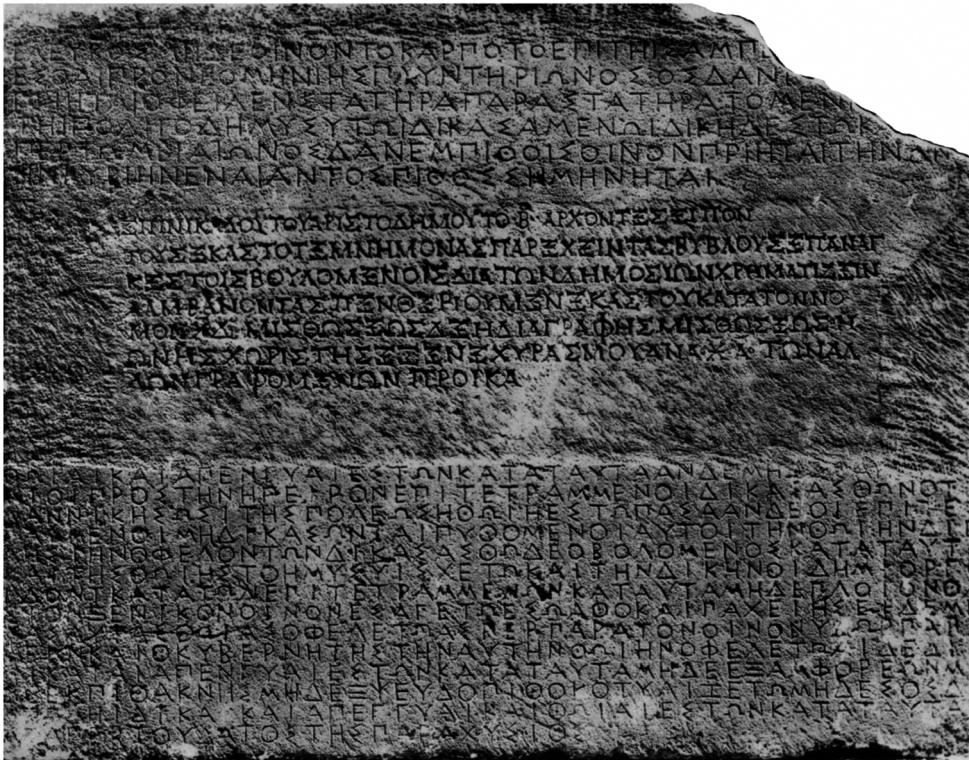 ΓΛΕΥΚΟΣΜΗΔΕΟΙΝΟΝΤΟΚΑΡΠΟΤΟΕΠΙΤΗΙΣΑΜΠ
ΕΣΘΑΙΠΡΟΝΕΟΜΗΝΙΗΣΠΛΥΝΤΗΡΙΩΝΟΣΟΣΔΑΝ
ΟΦΕΙΛΕΝΣΤΑΤΗΡΑΠΑΡΑΣΤΑΤΗΡΑΤΟΜΕΝ
ΤΟΔΗΜΥΣΥΤΩΙΔΙΚΑΣΑΜΕΝΩΙΔΙΚΗΔΕΣΤΩΚ
ΒΙΑΙΩΝΟΣΔΑΝΕΜΠΙΘΟΙΣΟΙΝΟΝΠΡΙΗΤΑΙΤΗΝΩΝ
ΗΝΚΥΡΙΗΝΕΝΑΙΑΝΤΟΣΠΙΘΟΣΣΗΜΗΝΗΤΑΙ
ΕΠΙΝΙΚΑΔΟΥΤΟΥΑΡΙΣΤΟΔΗΜΟΥΤΟ·Β·ΑΡΧΟΝΤΕΣΕΙΠΟΝ
ΤΟΥΣΕΚΑΣΤΟΤΕΜΝΗΜΟΝΑΣΠΑΡΕΧΕΙΝΤΑΣΒΥΒΛΟΥΣΕΠΑΝΑΓ
ΚΕΣΤΟΙΣΒΟΥΛΟΜΕΝΟΙΣΔΙΑΤΩΝΔΗΜΟΣΙΩΝΧΡΗΜΑΤΙΣΕΙΝ
ΛΑΜΒΑΝΟΝΤΑΣΠΕΝΘΕΡΙΟΥΜΕΝΕΚΑΣΤΟΥΚΑΤΑΤΟΝΝΟ
ΜΟΝ·ΧΑ·ΜΙΣΘΩΣΕΩΣΔΕΗΔΙΑΓΡΑΦΗΣΜΙΣΘΩΣΕΩΣΗ
ΩΝΗΣΧΩΡΙΣΤΗΣΕΞΕΝΕΧΥΡΑΣΜΟΥΑΝΑ·ΧΑ·ΤΩΝΑΛ
ΛΩΝΓΡΑΦΟΜΕΝΩΝ·ΠΕΡΟΥΚΑ
ΚΑΙΑΠΕΝΓΥΑΙΕΣΤΩΝΚΑΤΑΤΑΥΤΑΑΝΔΕΜΗ
ΟΙΠΡΟΣΤΗΝΗΠΕΙΡΟΝΕΠΙΤΕΤΡΑΜΜΕΝΟΙΔΙΚΑΣΑΣΘΩΝΟΤ
ΝΙΚΗΣΩΣΙΤΗΣΠΟΛΕΩΣΗΘΩΙΗΕΣΤΩΠΑΣΑΑΝΔΕΟΙΕΠΙΤΕ
ΟΙΜΗΔΙΚΑΣΩΝΤΑΙΠΥΘΟΜΕΝΟΙΑΥΤΟΙΤΗΜΘΩΙΗΝΔΙ
ΗΝΟΦΕΛΟΝΤΩΝΔΙΚΑΣΑΣΘΩΔΕΟΒΟΛΟΜΕΝΟΣΚΑΤΑΤΑΥΤ
ΗΣΘΩΙΗΣΤΟΗΜΥΣΥΙΣΧΕΤΩΚΑΙΤΗΝΔΙΚΗΝΟΙΔΗΜΙΟΡΓ
ΚΑΤΑΤΩΝΕΠΙΤΕΤΡΑΜΜΕΝΩΝΚΑΤΑΥΤΑΜΗΔΕΠΛΟΙΟΝΘ
ΞΕΝΙΚΟΝΟΙΝΟΝΕΣΑΓΕΤΩΕΣΩΑΘΟΚΑΙΠΑΧΕΙΗΣΕΙΔΕΜ
ΑΣΟΦΕΛΕΤΩΑΣΠΕΡΠΑΡΑΤΟΝΟΙΝΟΝΥΔΩΡ
ΚΑΙΟΚΥΒΕΡΝΗΤΗΣΤΗΝΑΥΤΗΝΘΩΙΗΝΟΦΕΛΕΤΩΑΙΔΕΔ
ΑΠΕΓΓΥΑΙΕΣΤΩΝΚΑΤΑΤΑΥΤΑΜΗΔΕΕΞΑΜΦΟΡΕΩΝΜ
ΕΚΠΙΘΑΚΝΗΣΜΗΔΕΞΨΕΥΔΟΠΙΘΟΚΟΤΥΛΙΖΕΤΩΜΗΔΕΣΟΣΔ
ΔΙΚΑΙΚΑΙΑΠΕΓΓΥΑΙΚΑΙΘΩΙΑΙΕΣΤΩΝΚΑΤΑΤΑΥΤΑ
ΤΟΥΔΑΤΟΣΤΗΣΠΑΡΑΧΥΣΙΟΣ